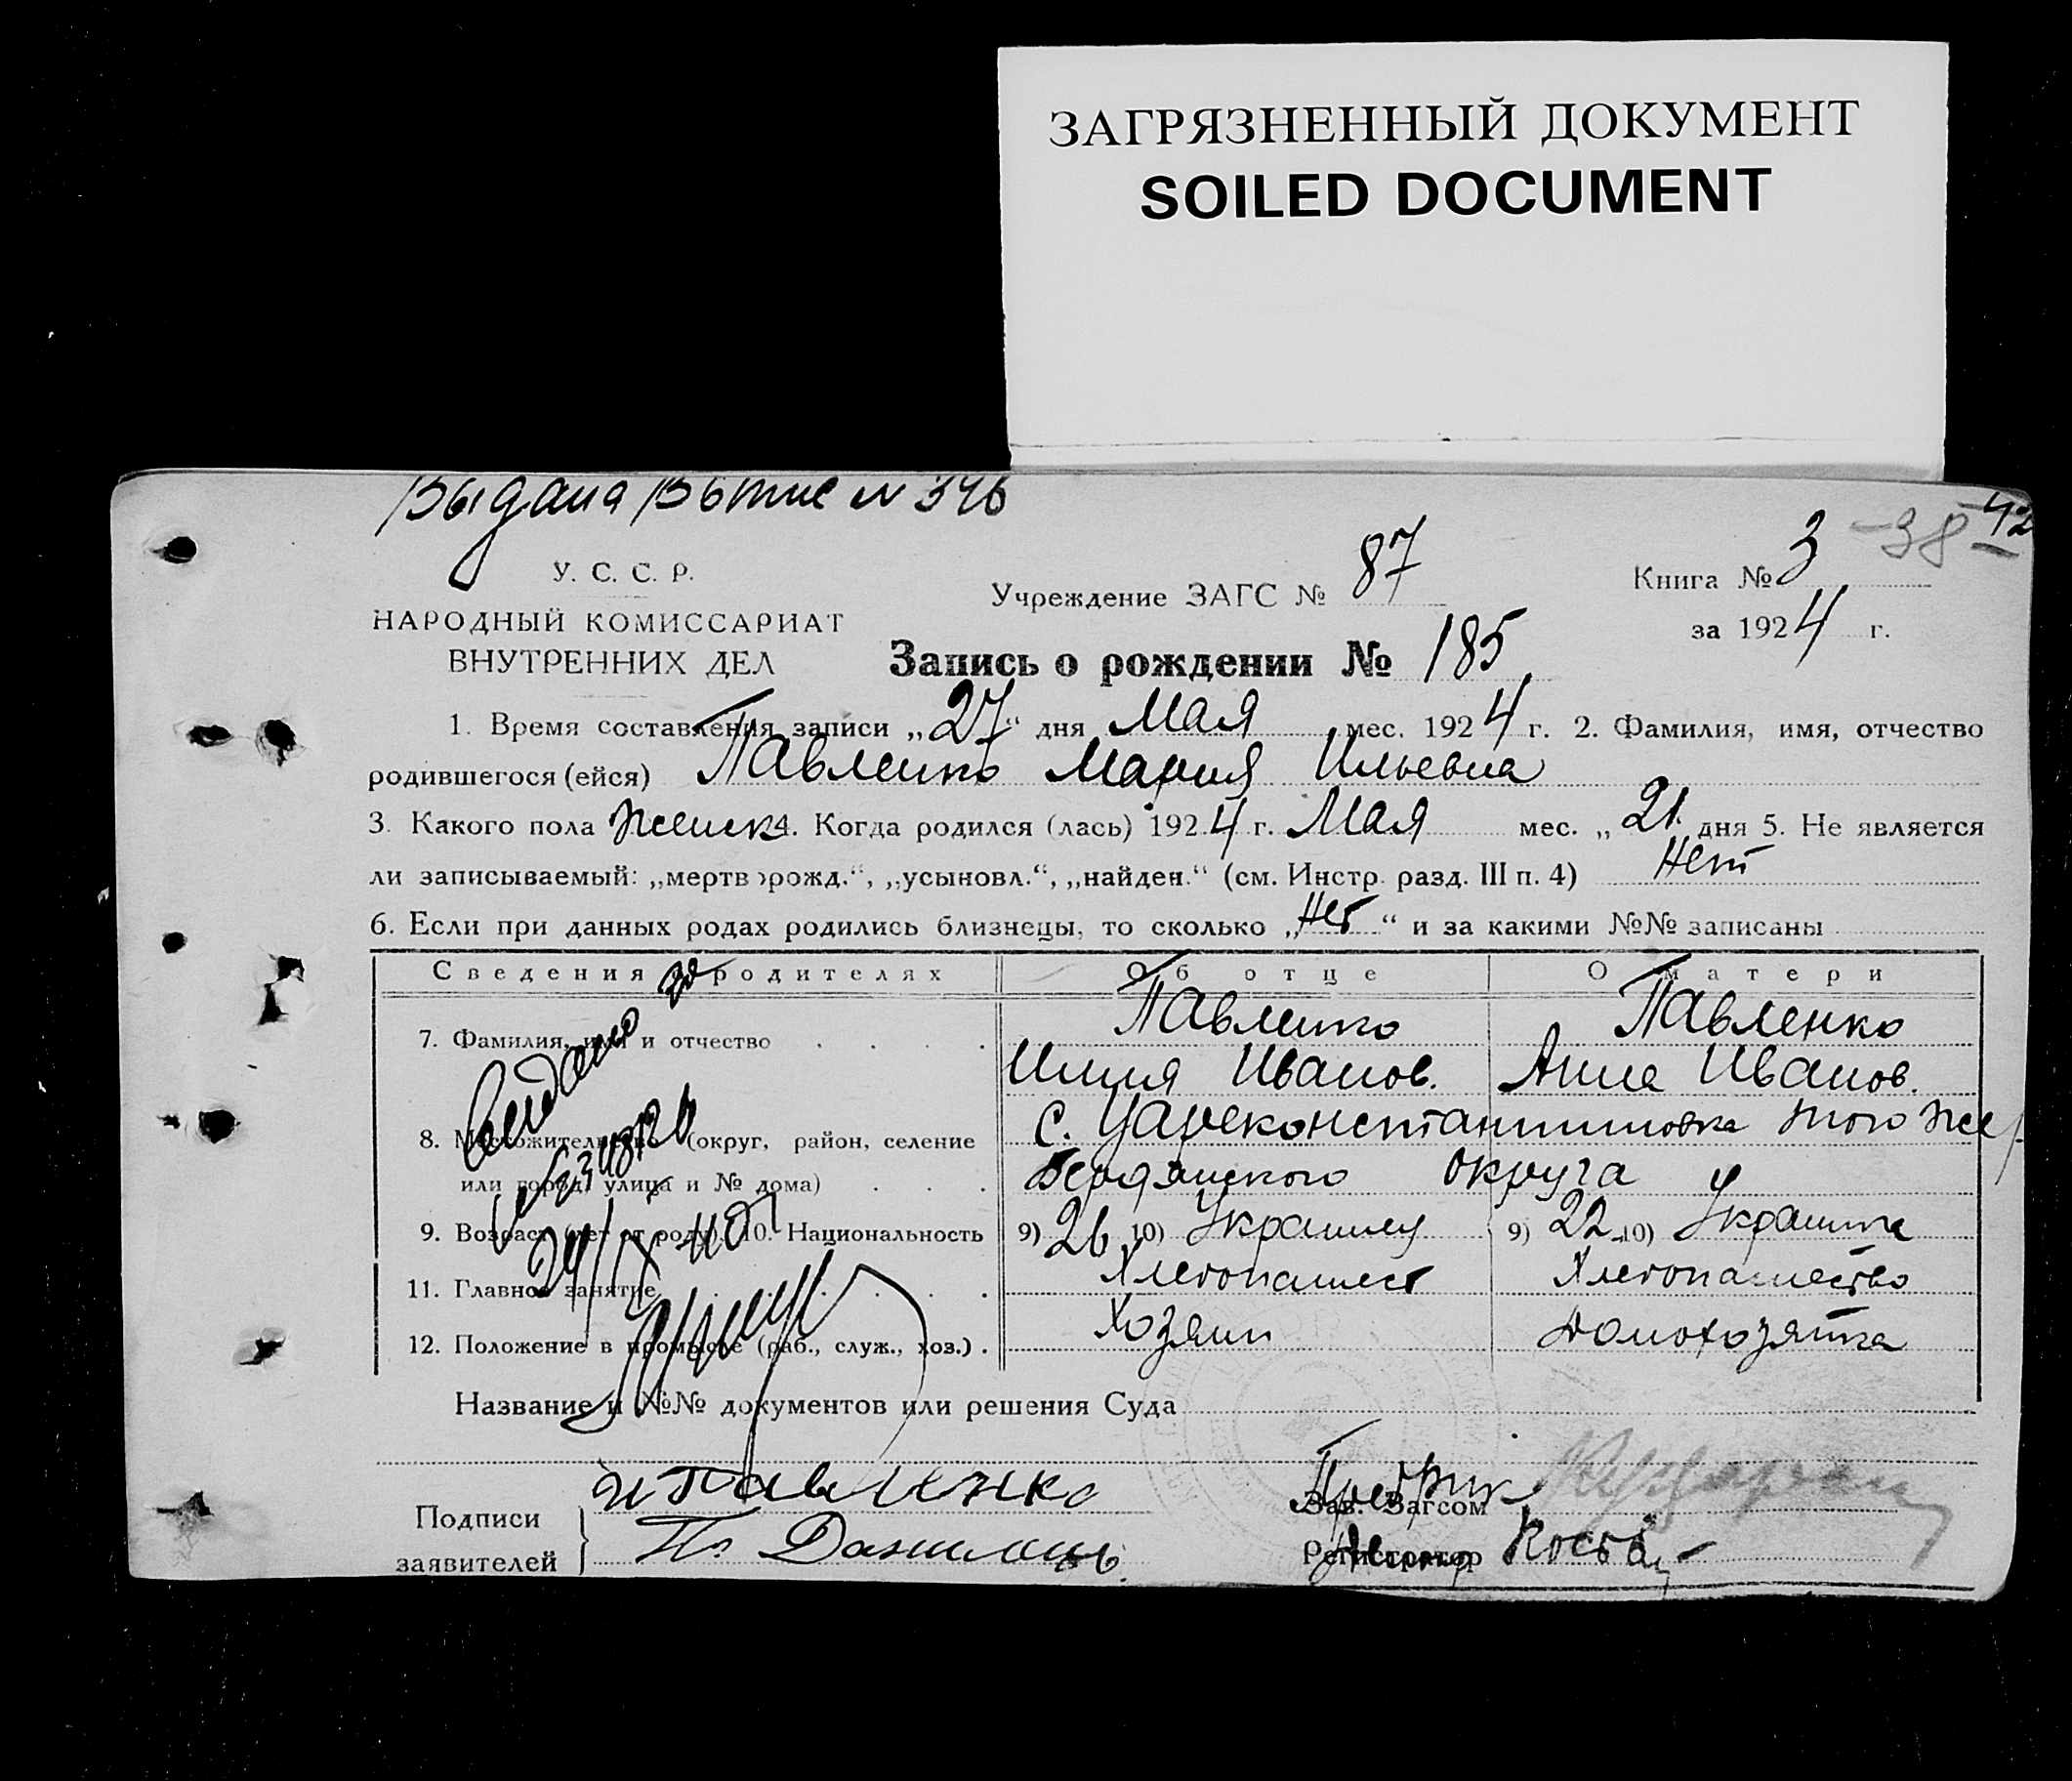 ЗАГРЯЗНЕННЫЙ ДОКУМЕНТ
SOILED DOCUMENT
Выдана Вытис N 346
38 42
У. С. С. Р.
Учреждение ЗАГС № 87
Книга № 3
НАРОДНЫЙ КОМИССАРИАТ
за 1924 г.
ВНУТРЕННИХ ДЕЛ
Запись о рождении № 185
1. Время составления записи „27“ дня Мая мес. 1924 г. 2. Фамилия, имя, отчество
родившегося (ейся) Павленко Мария Ильевна
3. Какого пола Женск 4. Когда родился (лась) 1924 г. Мая мес. „21 дня 5. Не является
ли записываемый: „мертворожд.“, „усыновл.“, „найден.“ (см. Инстр. разд. III п. 4) Нет
6. Если при данных родах родились близнецы, то сколько „Нет“ и за какими №№ записаны
Сведения о родителях Об отце О матери
7. Фамилия, имя и отчество Павленко Павленко
Илия Иванов. Анна Иванов.
8. Местожительство (округ, район, селение С. Цареконстантиновка того же
или город, улица и № дома) Бердянского округа
9. Возраст (лет от роду) 10. Национальность 9) 26 10) Украинец 9) 22 10) Украинка
11. Главное занятие Хлебопашест Хлебопашество
12. Положение в промысле (раб., служ., хоз.) Хозяин Домохозяйка
Выдано
Название и №№ документов или решения Суда
Подписи заявителей
И Павленко
Зав. Загсом
Регистратор